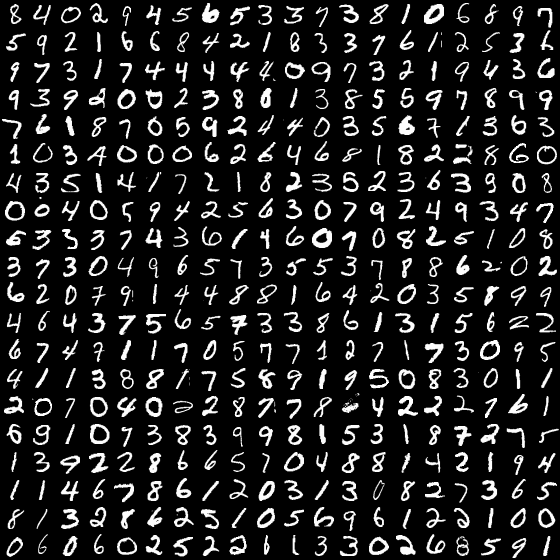 8 4 0 2 9 4 5 6 5 3 3 7 3 8 1 0 6 8 9 7
5 9 2 1 6 6 8 4 2 1 8 3 3 7 6 1 2 5 3 6
9 7 3 1 7 4 4 4 4 4 0 9 7 3 2 1 9 4 3 6
9 3 9 2 0 0 2 3 8 0 1 3 8 5 5 9 7 8 9 9
7 6 1 8 7 0 5 9 2 4 4 0 3 5 6 7 1 3 6 3
1 0 3 4 0 0 0 6 2 6 4 6 8 1 8 2 2 8 6 0
4 3 5 1 4 1 7 2 1 8 2 3 5 2 3 6 3 9 0 8
0 0 4 0 5 9 4 2 5 6 3 0 7 9 2 4 9 3 4 7
6 3 3 3 7 4 3 6 1 4 6 0 7 0 8 2 5 1 0 8
3 7 3 0 4 9 6 5 7 3 5 5 3 7 8 8 6 2 0 2
6 2 0 7 9 1 4 4 8 8 1 6 4 2 0 3 5 8 9 9
4 6 4 3 7 5 6 5 7 3 3 8 6 1 3 1 5 6 2 2
6 7 4 9 1 1 7 0 5 7 7 1 2 7 1 7 3 0 9 5
4 1 1 3 8 8 1 7 5 8 9 1 9 5 0 8 3 0 1 1
2 0 7 0 4 0 0 2 8 7 7 8 4 2 2 2 7 6 1
6 9 1 0 7 3 8 3 9 9 8 1 5 3 1 8 7 2 7 5
1 3 9 2 2 8 6 6 5 7 0 4 8 8 1 4 2 1 9 4
1 1 4 6 7 8 6 1 2 0 3 1 3 0 8 2 7 3 6 5
8 1 3 2 8 6 2 5 1 0 5 6 9 6 1 2 2 1 0 0
0 6 0 6 0 2 5 2 2 1 1 3 3 0 2 6 8 5 9 1